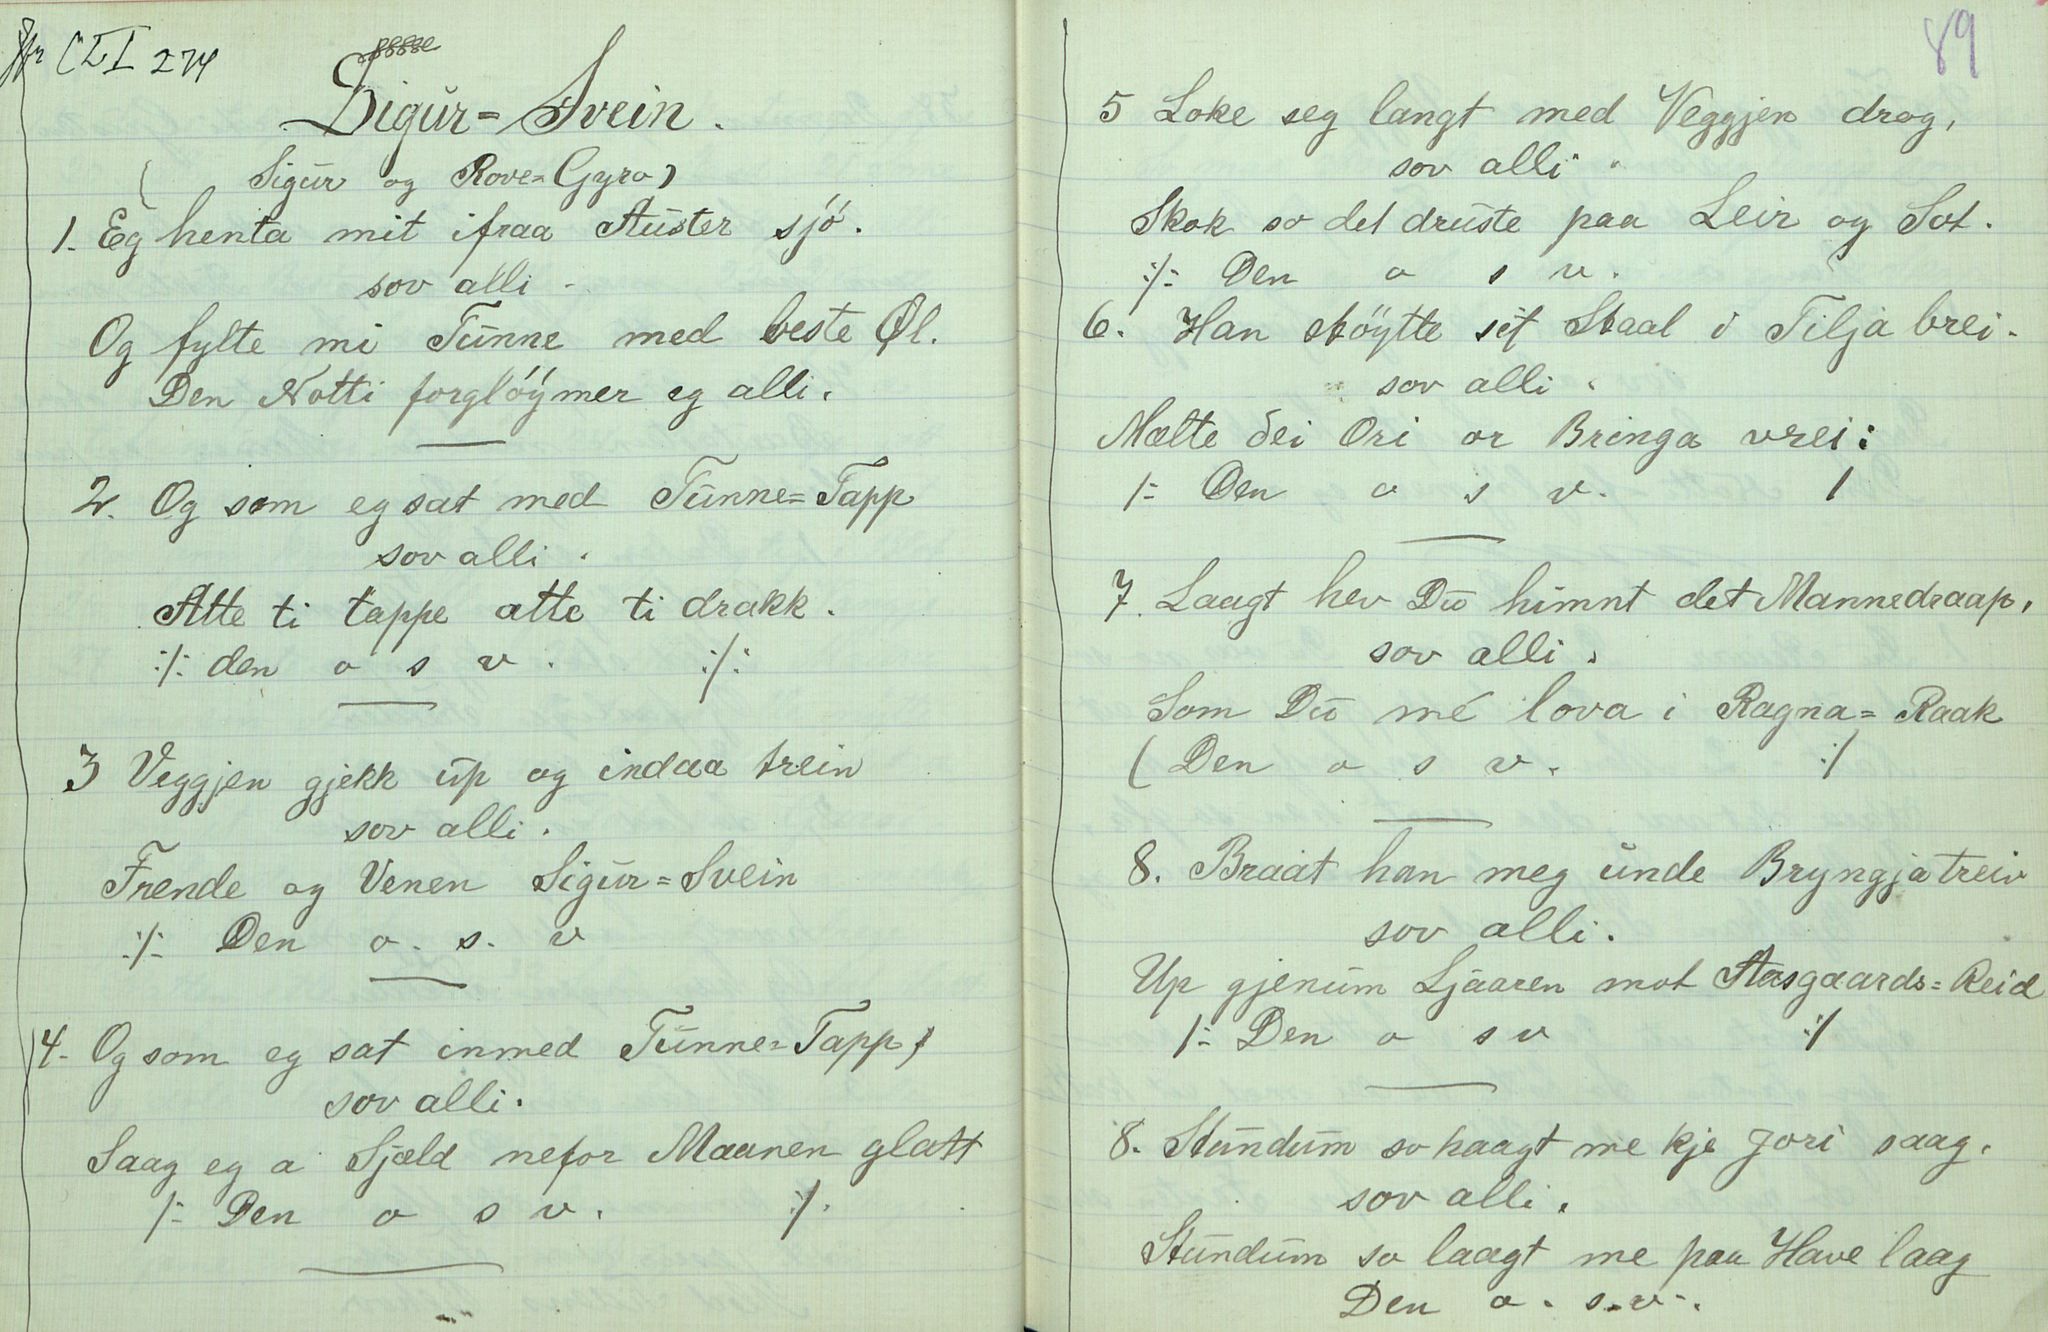 CLI 274
Sigur= Svein.
( Sigur og Rove=Gyro)
1. Eg henta mit ifraa Auster sjö.
sov alli -
Og fylte mi Tunne med beste Øl.
Den Notti forglöymer eg alli.
2. Og som eg sat med Tunne=Tapp
sov alli.
Atte ti tappe atte ti drakk.
:/: den o s v. :/:
3 Veggjen gjekk up og indaa trein
sov alli.
Frende og Venen Sigur=Svein
:/: Den o. s. v
4. Og som eg sat inmed Tunne=Tapp,
sov alli.
Saag eg a Sjæld nefor Maanen glatt
/: Den o s v. :/.
89
5 Loke seg langt med Veggjen drog,
sov alli.
Skok so det druste paa Leir og Sot.
:/: Den o s v.
6. Han stöytte sit Staal i Tilja brei.
sov alli.
Mælte dei Ori or Bringa vrei:
/: Den o s v. /
7. Laagt hev Du himnt det Mannedraap,
sov alli.
Som Du me lova i Ragna= Raak
( Den o s v. :/
8. Braat han meg unde Bryngja treiv
sov alli.
Up gjenum Ljaaren mot Aasgaards= Reid
/: Den o s v :/
8. Stundum so haagt me kje Jori saag.
sov alli.
Stundum so laagt me paa Have laag
Den o. s.v.